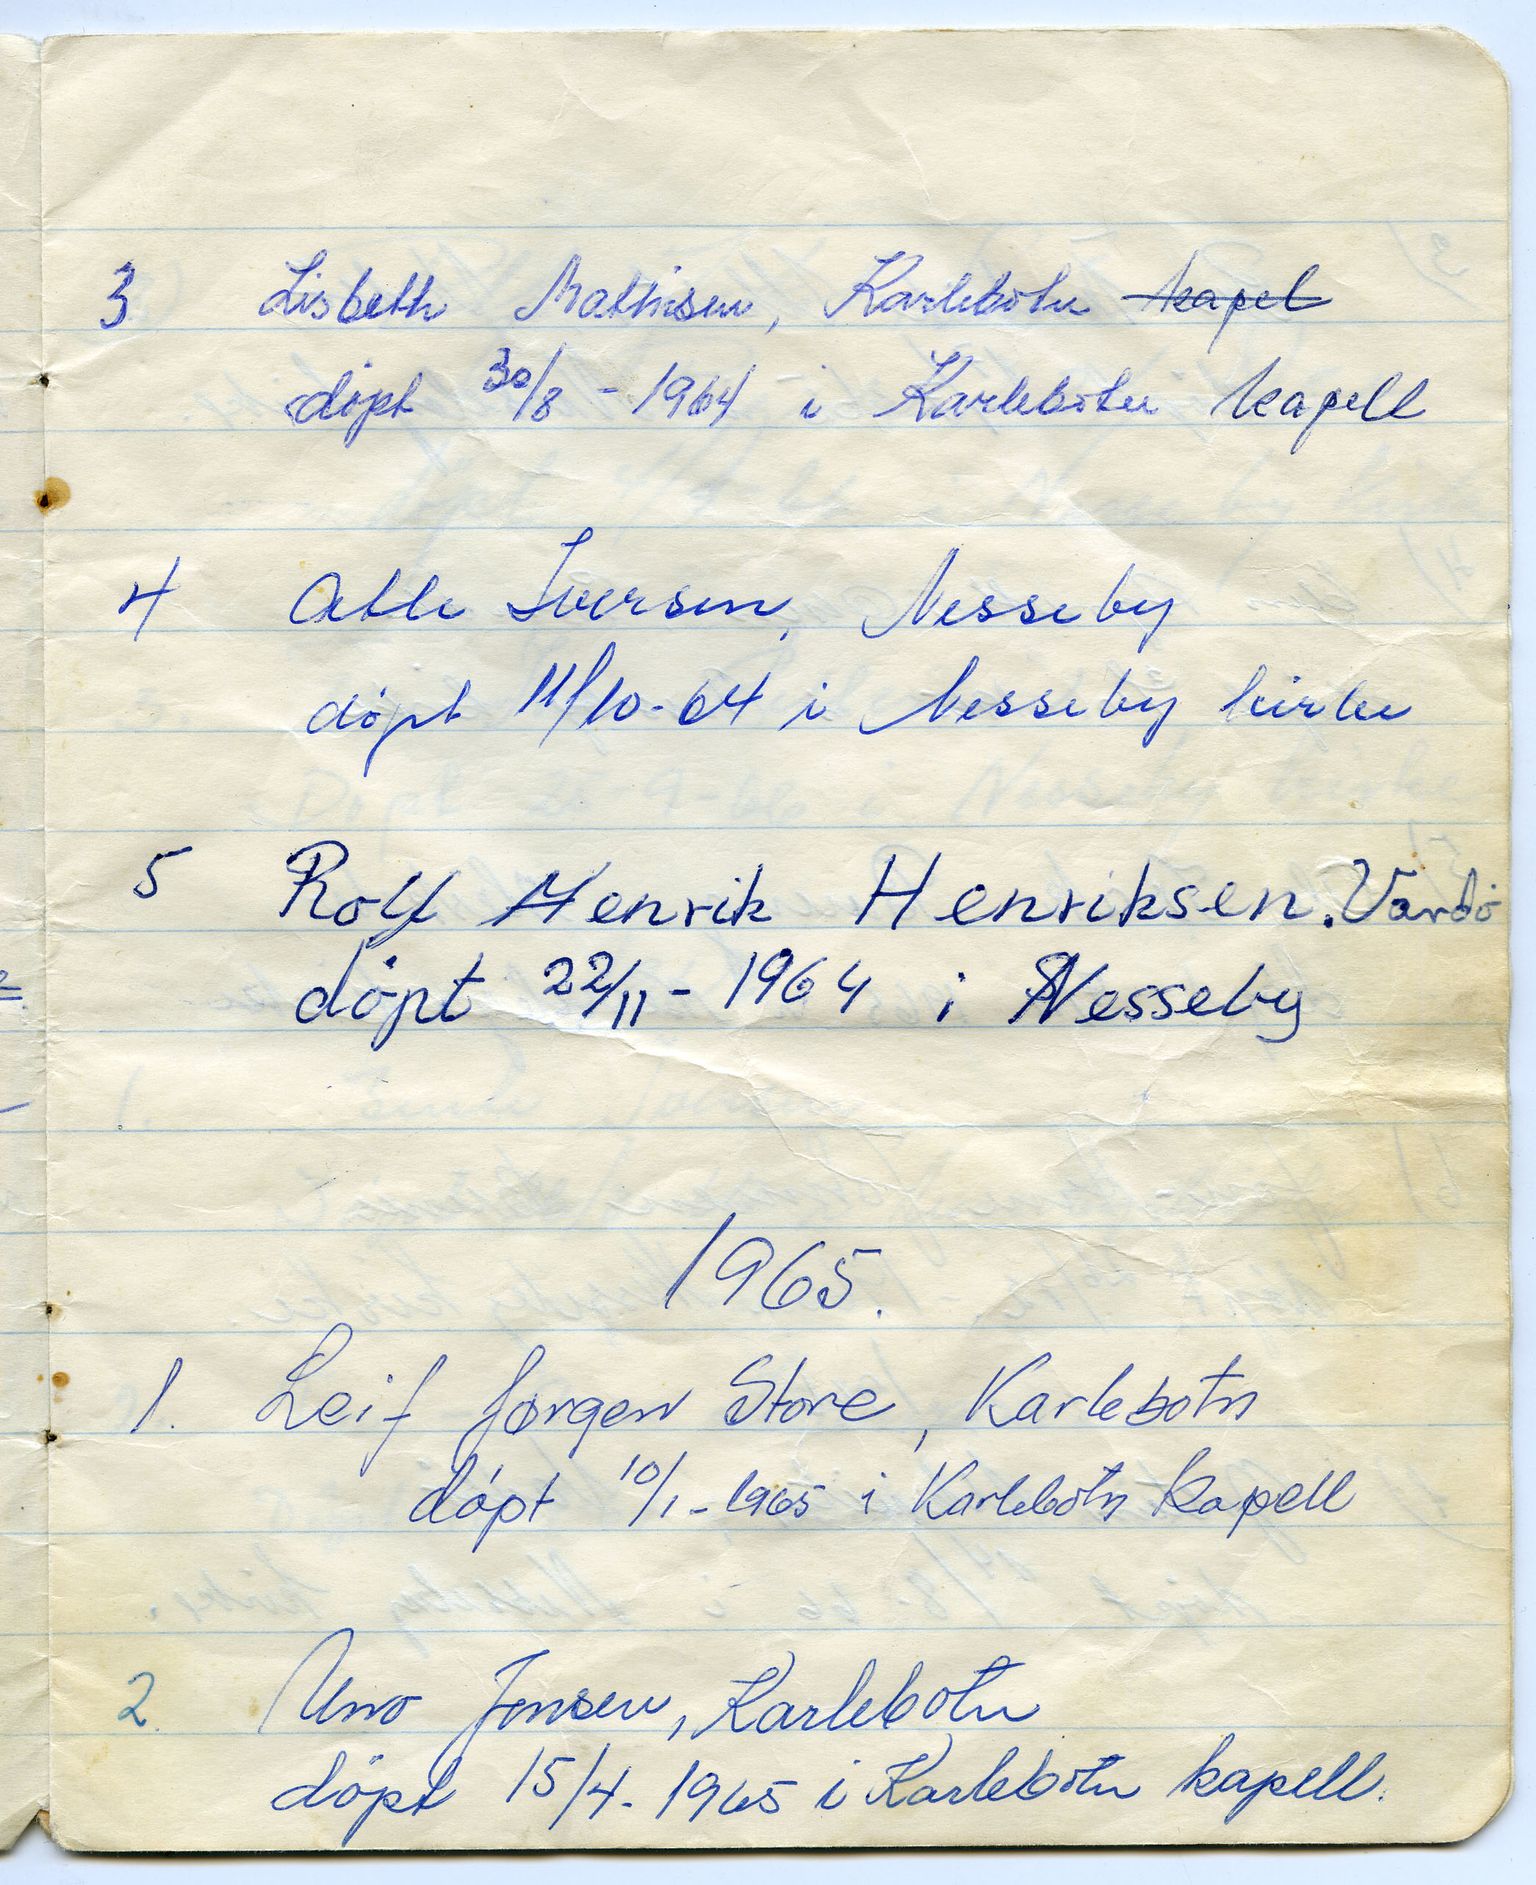 3 Lisbeth Mathisen, Karlebotn kapel
døpt 30/8 - 1964 i Karlebotn kapell
4 Atle Iversen, Nesseby
døpt 11/10-64 i Nesseby kirke
5 Rolf Henrik Henriksen. Vardø
døpt 22/11 - 1964 i Nesseby
1965.
1. Leif Jørgen Store, Karlebotn
døpt 10/1-1965 i Karlebotn kapell
2. Uno Jensen, Karlebotn
døpt 15/4-1965 i Karlebotn kapell.